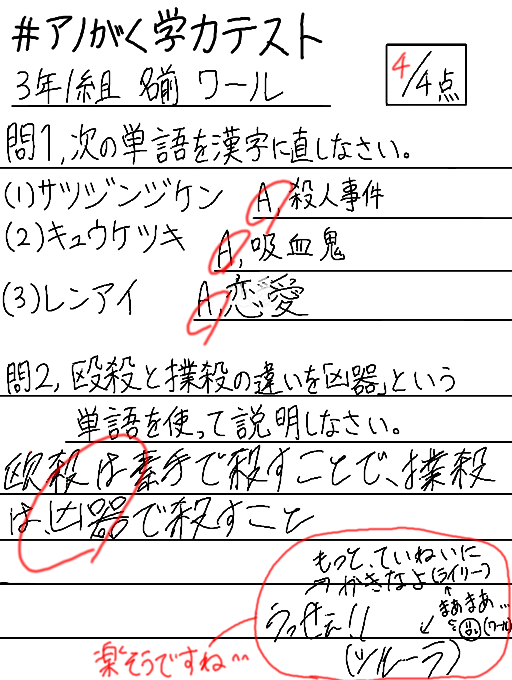 #アノがく学力テスト
3年1組 名前 ワール
4/4点
問1,次の単語を漢字に直しなさい。
(1)サツジンジケン A,殺人事件
(2)キュウケツキ A,吸血鬼
(3)レンアイ A,恋愛
問2,殴殺と撲殺の違いを「凶器」という
単語を使って説明しなさい。
殴殺は素手で殺すことで、撲殺
は、凶器で殺すこと
もっと、ていねいに
かきなよ(ライリー)
まあまあ…
(ワール)
うっせぇ!!
(ツルーラ)
楽しそうですね〜